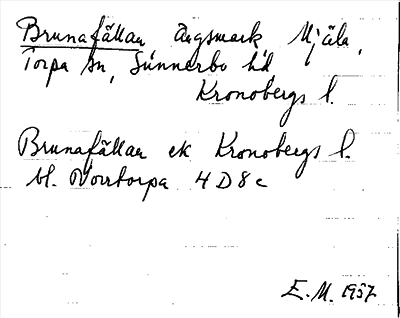 Brunafällan ängsmark Mjäla,
Torpa sn, Sunnerbo hd,
Kronobergs l.
Brunafällan ek Kronobergs l.
bl. Norrtorpa 4 D 8 c
E. M. 1957